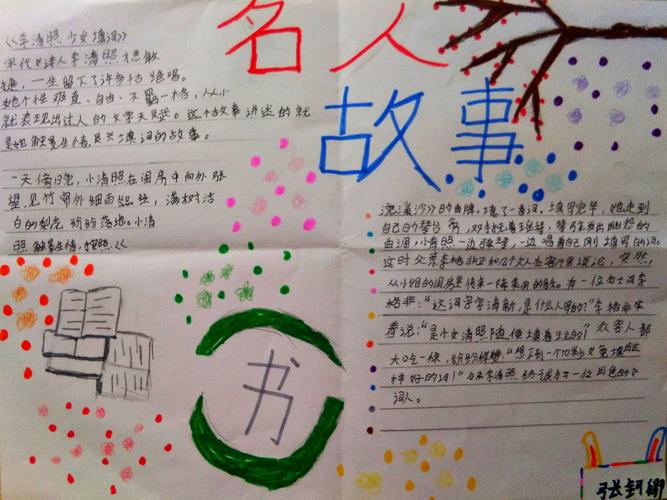 名人
故事
《李清照少女填词》
宋代女诗人李清照才思敏
捷，一生留下了许多千古绝唱。
她个性难直、自由、不羁一格，从小
就表现出过人的文学天赋。这个故事讲述的就
是她触景生情，即兴填词的故事。
一天傍晚，小清照在闺房中向外张
望，见竹帘外细雨如丝，满树洁
白的梨花纷纷落地。小清
照触景生情，按照《
浣溪沙》的曲牌，填了一首词。填写完毕，她走到
自己的琴台旁，双手抚着琴弦，琴声发出幽怨的
曲调，小清照一边弹琴，一边唱着自己刚填写的词。
这时父亲李格非正和几个文人在客厅里谈论，突然，
从小姐的闺房里传来一阵美丽的音乐。有一位女士问李
格非：“这词写字清新，是什么人写的？”李格非笑
着说：“是小女清照随便填着玩的！”众客人都
大吃一惊，纷纷称赞：“想不到一个10岁少女能填出这
样好的词！”后来李清照终于成为了一位出色的女
词人。
书
张